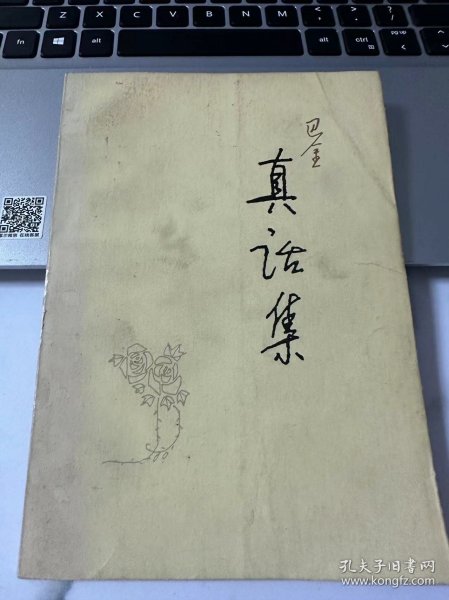 巴金
真话集
Z X C V B N M
fn alt alt ctrl
PgUp PgDn
在线客服
孔夫子旧书网
www.kongfz.com